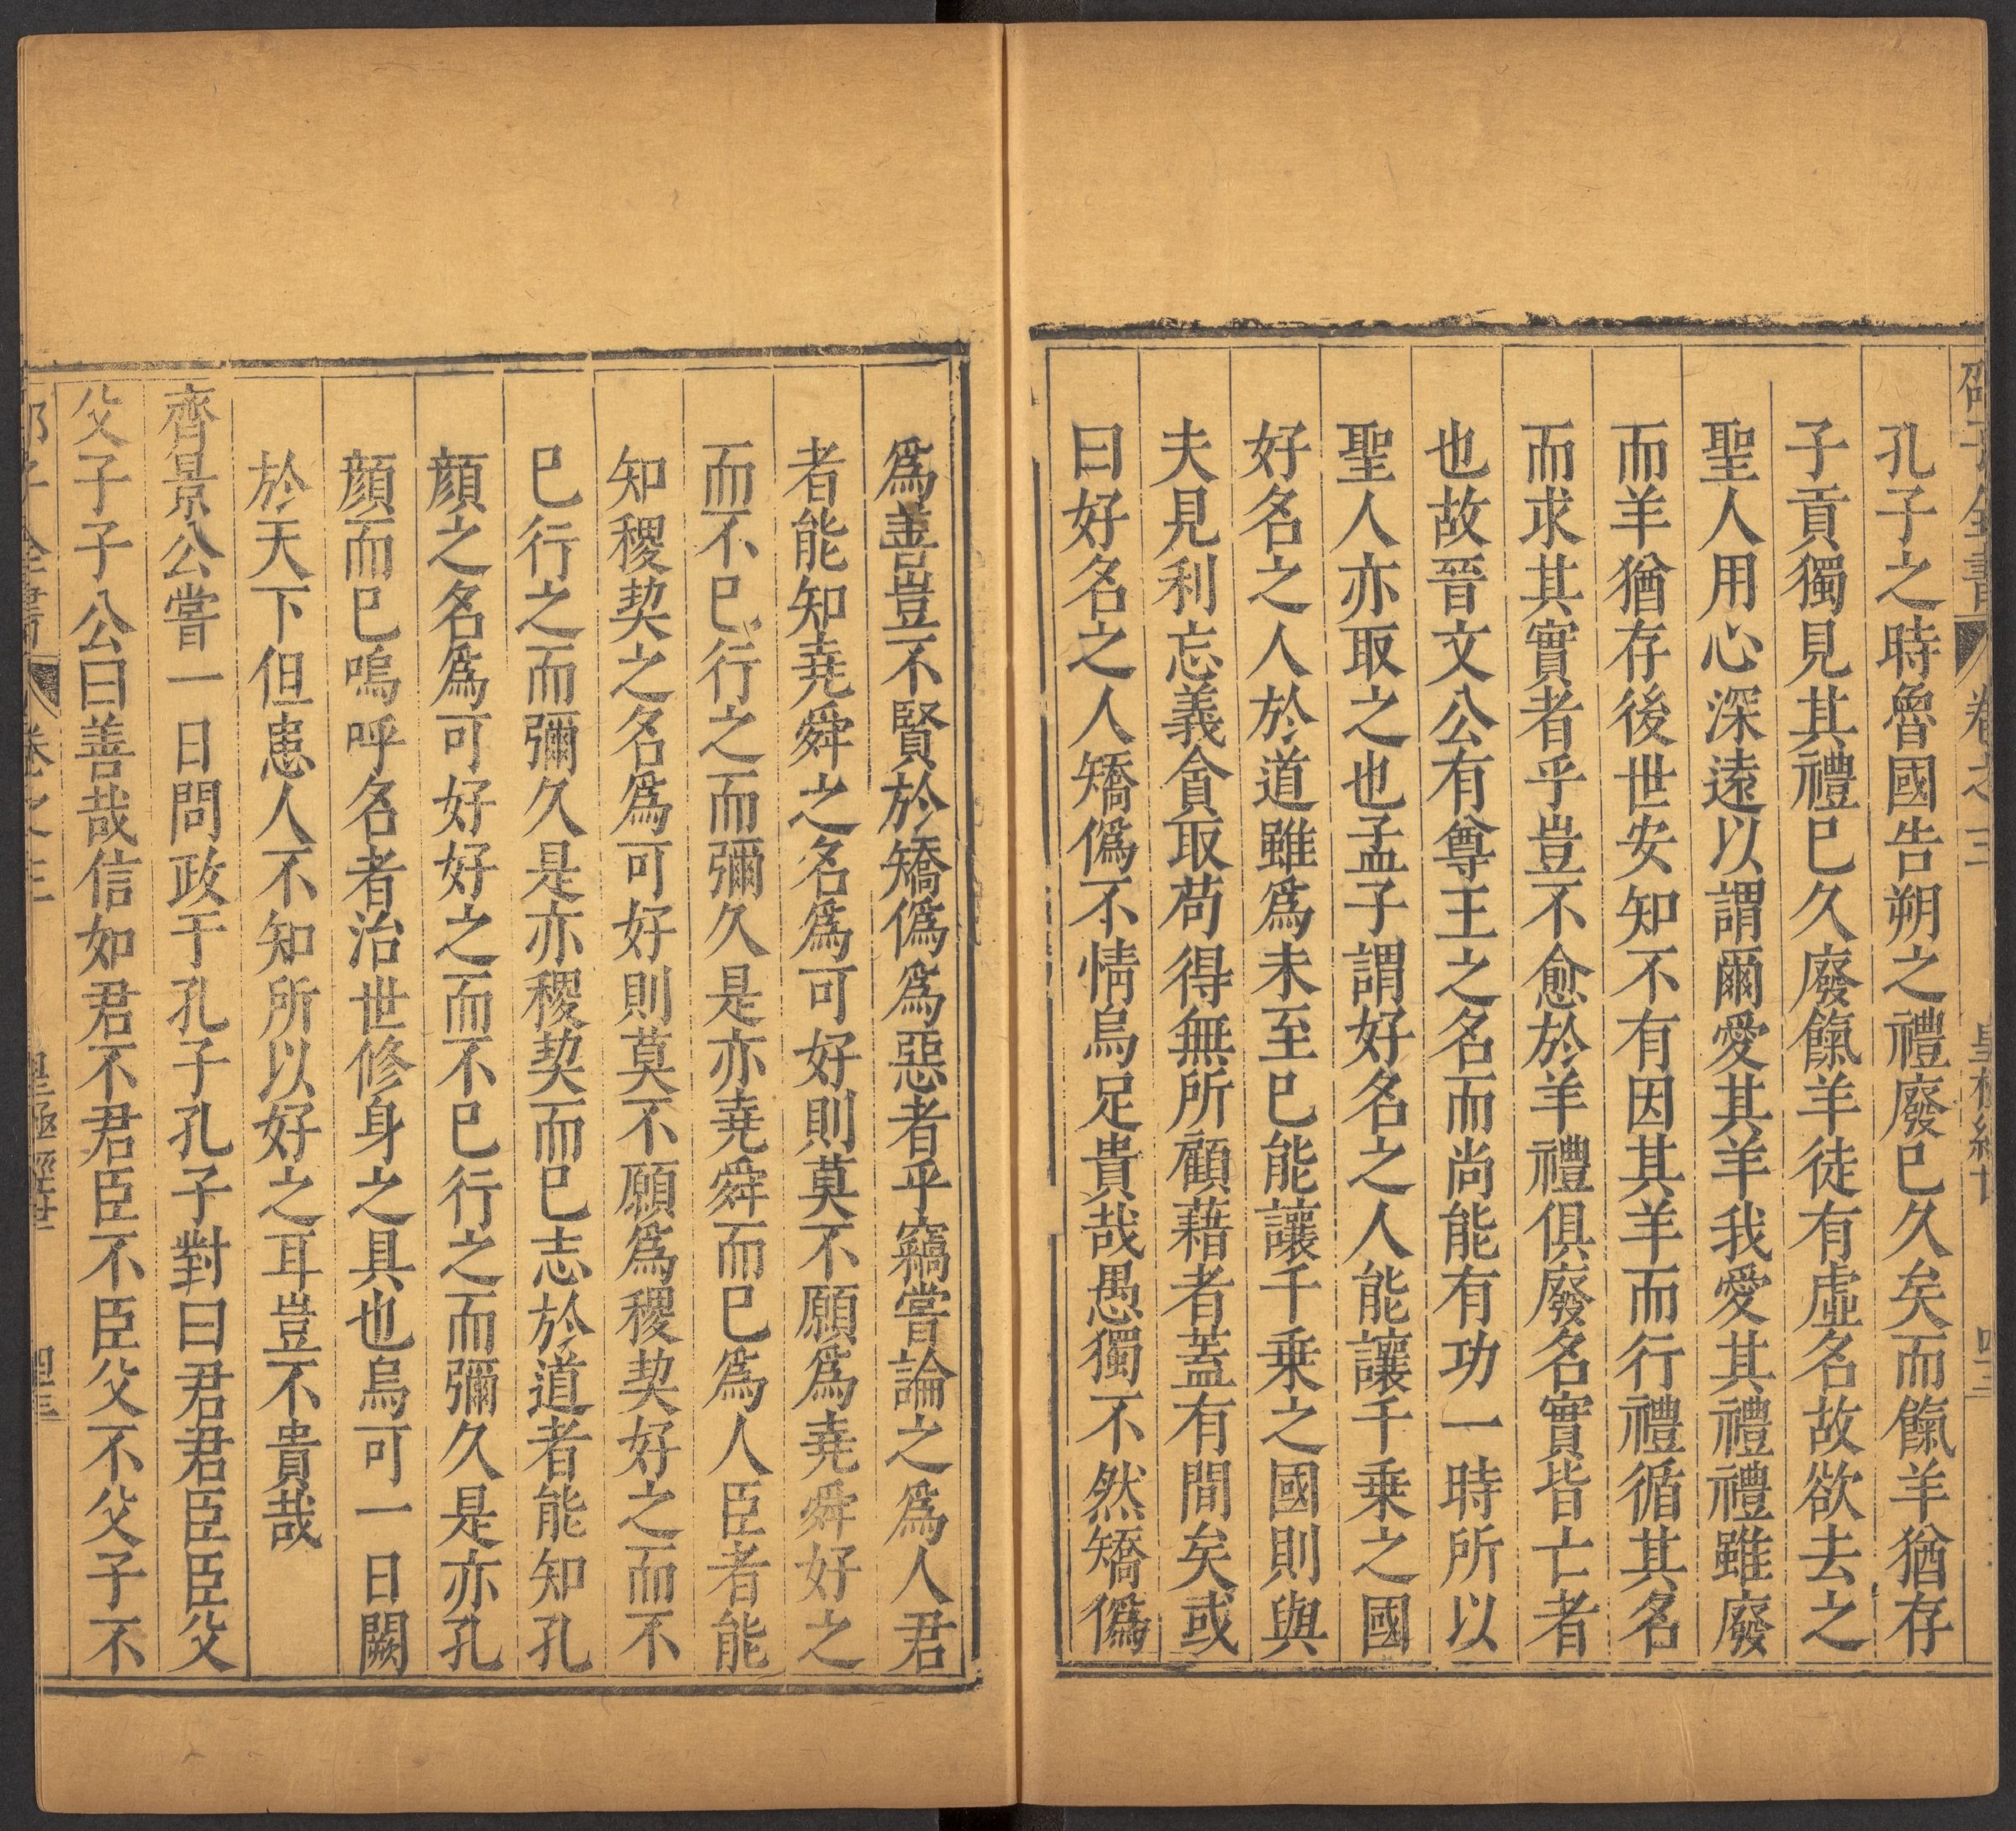 邵子全書 卷之三 皇極經世 四十三
孔子之時魯國告朔之禮廢巳久矣而餼羊猶存
子貢獨見其禮巳久廢餼羊徒有虛名故欲去之
聖人用心深遠以謂爾愛其羊我愛其禮禮雖廢
而羊猶存後世安知不有因其羊而行禮循其名
而求其實者乎豈不愈於羊禮俱廢名實皆亡者
也故晉文公有尊王之名而尚能有功一時所以
聖人亦取之也孟子謂好名之人能讓千乗之國
好名之人於道雖爲未至巳能讓千乗之國則與
夫見利忘義貪取苟得無所顧藉者蓋有間矣或
曰好名之人矯僞不情烏足貴哉愚獨不然矯僞
爲善豈不賢於矯僞爲惡者乎竊嘗論之爲人君
者能知堯舜之名爲可好則莫不願爲堯舜好之
而不巳行之而彌久是亦堯舜而巳爲人臣者能
知稷契之名爲可好則莫不願爲稷契好之而不
巳行之而彌久是亦稷契而巳志於道者能知孔
顔之名爲可好好之而不巳行之而彌久是亦孔
顔而巳嗚呼名者治世修身之具也烏可一日闕
於天下但患人不知所以好之耳豈不貴哉
齊景公嘗一日問政于孔子孔子對曰君君臣臣父
父子子公曰善哉信如君不君臣不臣父不父子不
子全書 卷之三 皇極經世